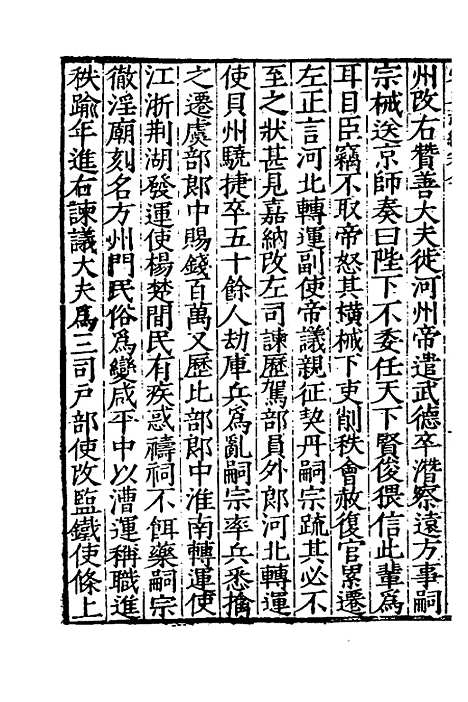 州改右贊善大夫徙河州帝遣武德卒潛察遠方事嗣
宗械送京師奏曰陛下不委任天下賢俊猥信此輩爲
耳目臣竊不取帝怒其橫械下吏削秩會赦復官累遷
左正言河北轉運副使帝議親征契丹嗣宗疏其必不
至之狀甚見嘉納改左司諫歷駕部員外郎河北轉運
使貝州驍捷卒五十餘人劫庫兵爲亂嗣宗率兵悉擒
之遷虞部郎中賜錢百萬又歷比部郎中淮南轉運使
江浙荆湖發運使楊楚間民有疾惑禱祠不餌藥嗣宗
徹淫廟刻名方州門民俗爲變咸平中以漕運稱職進
秩踰年進右諫議大夫爲三司戶部使改監鐵使條上